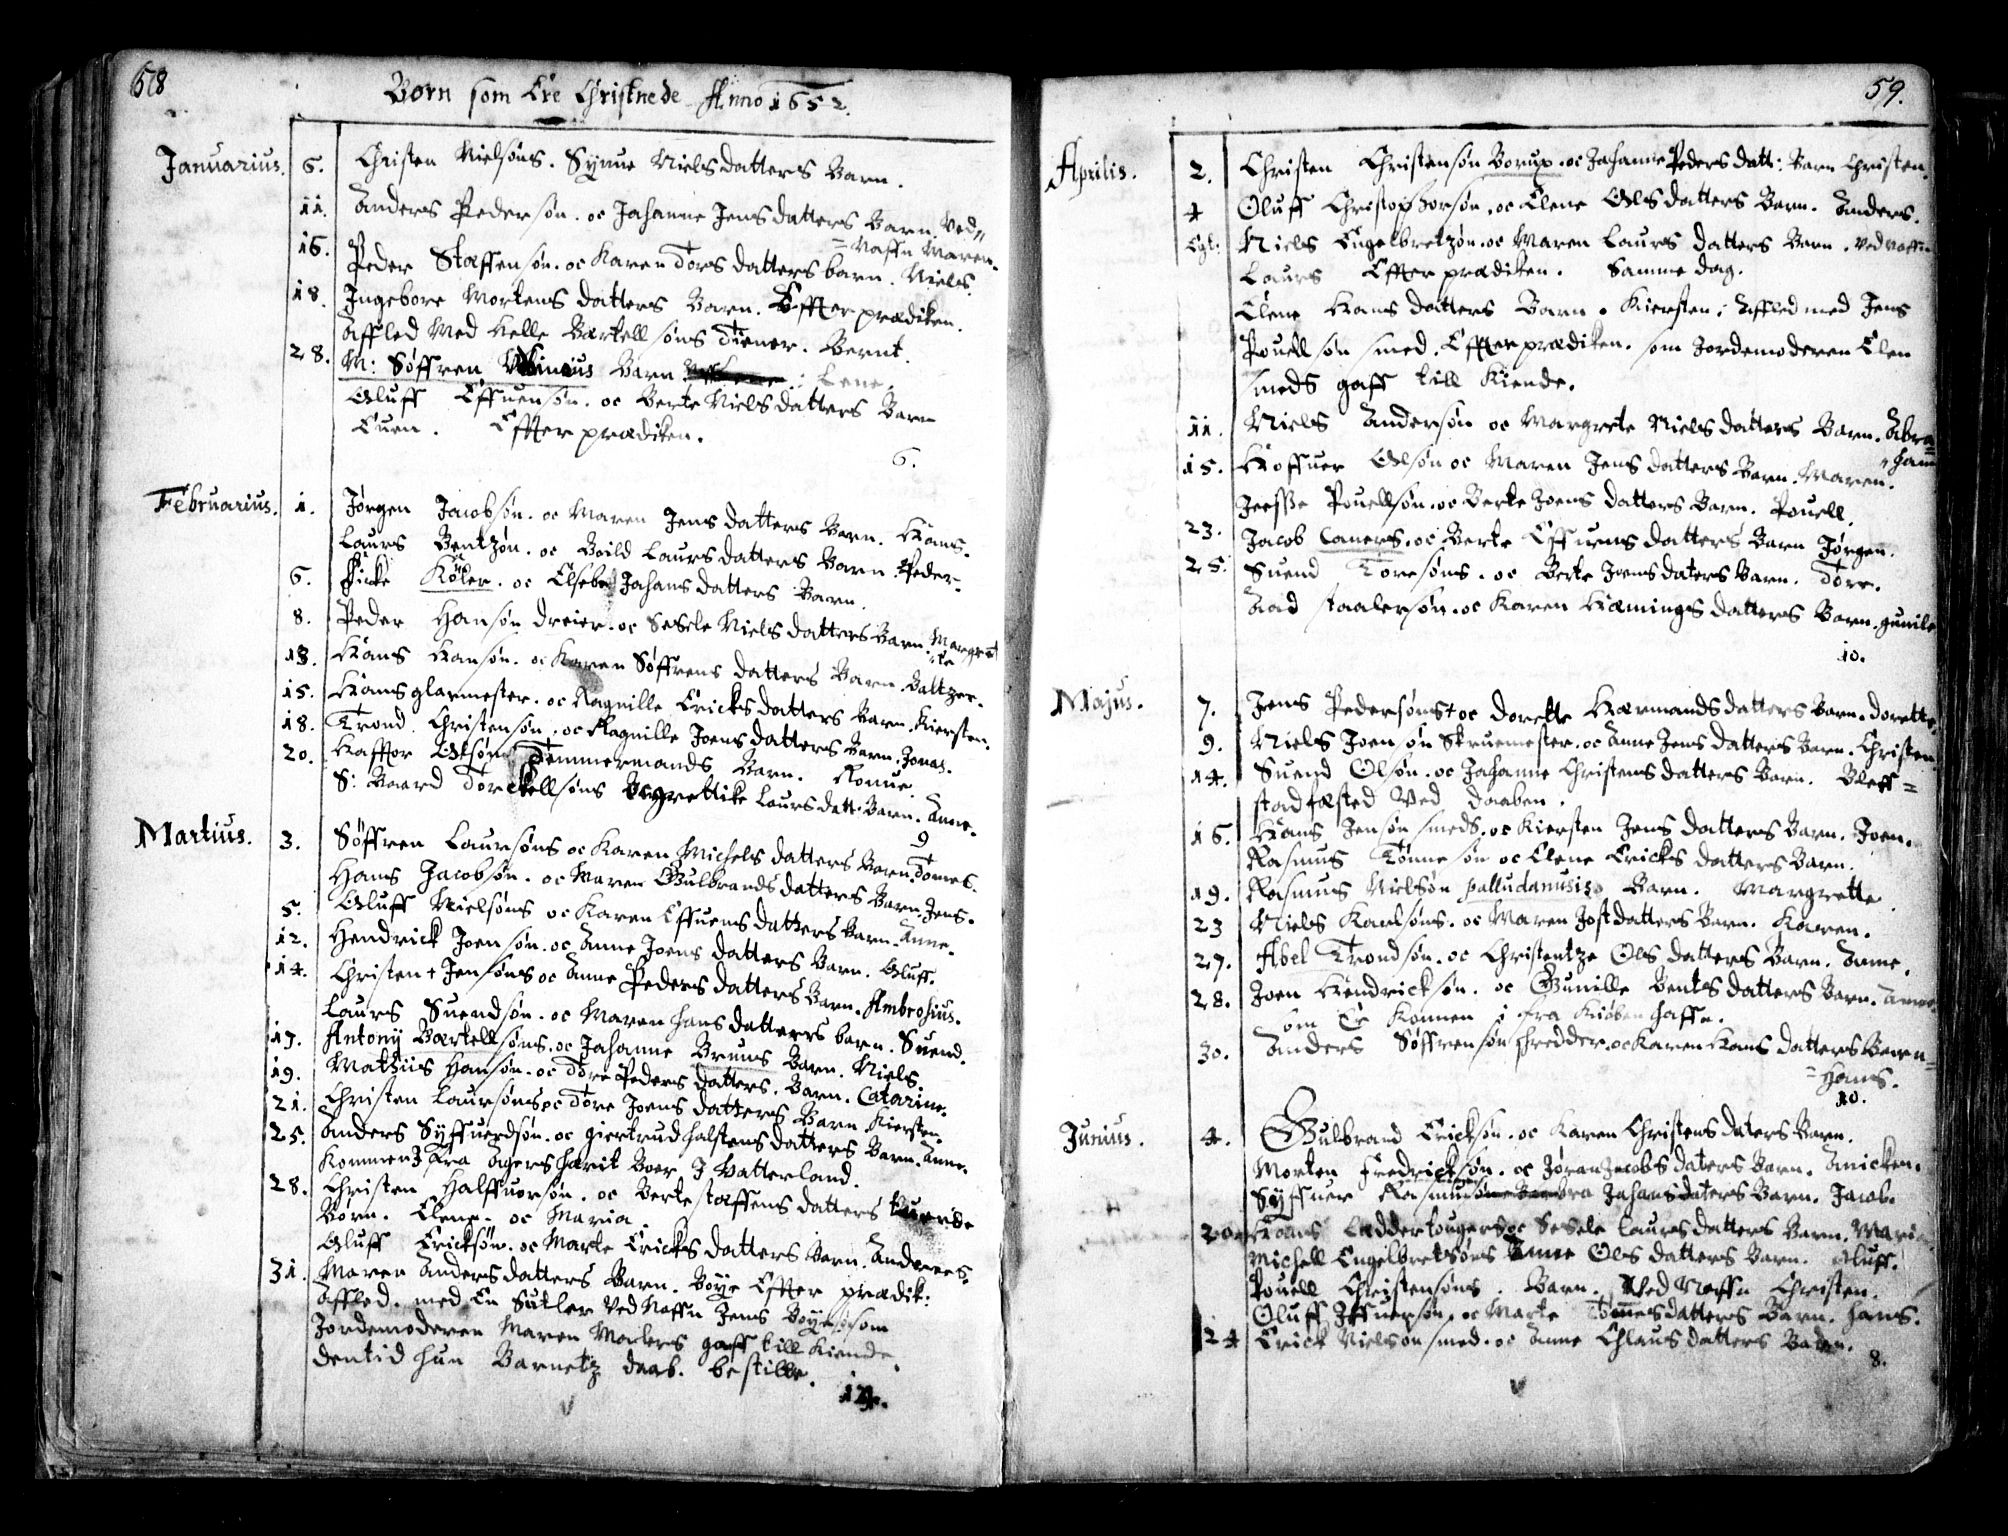 58
Børn som Ere Christnede Anno 1652.
Januarius. 6. Christen Nielsøns. Synnue Nielsdatters Barn.
11. Anders Pedersøn. oc Johanne Jensdatters Barn. Ved
= Naffn Maren.
16. Peder Staffensøn. oc Karen Torsdatters barn. Niels.
18. Ingebore Mortensdatters Barn. Effter prædiken.
Afflet Med Helle Bærtellsøns Tiener. Bernt.
28. M: Søffren Barn : Lene.
Oluff Effuensøn. oc Berte Nielsdatters Barn
Euen. Effter prædiken.
6.
Februarius. 1. Jørgen Jacobsøn. oc Maren Jensdatters Barn. Hans.
Laurs Bentzøn. oc Boild Laursdatters Barn. Peder.
6. Firke Køler. oc Elsebe Johansdatters Barn.
8. Peder Hansøn dreier. oc Sesele Nielsdatters Barn. Margret
te
13. Hans Hansøn. oc Karen Søffrensdatters Barn. Baltzer.
15. Hans glarmester. oc Ragnille Ericksdatters Barn. Kiersten.
18. Trond Christensøn. oc Ragnille Joensdatters Barn. Jonas.
20. Haffor Olsøns Temmermands Barn. Ronue.
S: Baard Torckellsøns Laursdatt: Barn. Anne.
9
Martius. 3. Søffren Laursøns oc Karen Michelsdatters Barn. Tomes.
Hans Jacobsøn. oc Maren Gulbrandsdatters Barn. Jens.
5. Oluff Nielsøns oc Karen Effuensdatters Barn. Anne.
12. Hendrick Joensøn. oc Anne Joensdatters Barn. Oluff.
14. Christen + Jensøns oc Anne Pedersdatters Barn. Ambrosius.
Laurs Suendsøn. oc Maren Hansdatters barn. Suend.
17. Antony Bærtellsøns. oc Johanne Bruns Barn. Niels.
19. Mathiis Hansøn. oc Tore Pedersdatters. Barn. Catarine.
21. Christen Laursøns oc Tore Joensdatters Barn Kiersten.
25. Anders Syffuerdsøn. oc giertrud Halstensdatters Barn. Anne.
Kommen J Fra Agers Boer J Vatterland.
28. Christen Halffuorsøn. oc Berte staffensdatters
Børn. Elene. oc Maria.
Oluff Ericksøn. oc Marte Ericksdatters Barn. Andrees.
31. Maren Andersdatters Barn. Boye Effter prædik:
Affled. med En Sutler Ved Naffn Jens Boyesøn som
Jordemoderen Maren Maelers gaff till Kiende.
dentid hun Barnetz daab. bestille.
14.
59.
Aprilis. 2. Christen Christensøn Borup. oc Johanne Pedersdatt: Barn Christen.
4 Oluff Christophorsøn. oc Elene Olsdatters Barn. Anders.
Niels Engelbretzøn. oc Maren Laursdatters Barn. Ved naffn
Laurs Effter prædiken. Samme dag.
Elene Hansdatters Barn. Kiersten; Affled med Jens
Pouellsøn smed. Effter prædiken. som Jordemoderen Elen
smeds gaff till Kiende.
11. Niels Andersøn oc Margrete Nielsdatters Barn. Abra
ham
15. Hoffuer Olsøn oc Maren Jensdatters Barn. Maren.
Jeesße Pouellsøn. oc Berte Joensdatters Barn. Pouell.
23. Jacob Caners. oc Berte Effuensdatters Barn Jørgen.
25. Suend Toresøns. oc Berte Joensdaters Barn. Tore.
Aad staalersøn. oc Karen Hæmingsdatters Barn. gunild
10.
Majus. 7. Jens Pedersøns + oc Dorette Hærmandsdatters Barn. Dorette.
9. Niels Joensøn Skruemester. oc Anne Jensdatters Barn. Christen.
14. Suend Olsøn. oc Johanne Christensdatters Barn. Bleff =
stadfæsted Ved daaben.
16. Hans Jensøn smeds. oc Kiersten Jensdatters Barn. Joen.
Rasmus Tønnesøn oc Elene Ericksdatters Barn.
19. Rasmus Nielsøn palludanusis Barn. Margrette.
23 Niels Karlsøns. oc Maren Jostdatters Barn. Karen.
27. Abel Trondsøn. oc Christentze Olsdatters Barn. Anne.
28. Joen Hendricksøn. oc Gunille Bentsdatters Barn.
Som Er Kommen i fra Kiøbenhaffn.
30. Anders Søffrensøn schredder. oc Karen Hansdatters Barn
= Hans.
10.
Junius. 4. Gulbrand Ericksøn. oc Karen Christensdaters Barn.
Morten Fredricksøn. oc Jøran Jacobsdaters Barn. Anicken.
Syffuer Johansdaters Barn. Jacob.
20. Hans oc Sesele Laursdatters Barn. Maria
Michell Engelbretsøns Anne Olsdatters Barn. Oluff.
Pouell Christensøns. Barn. Ved Naffn Christen.
Oluff Iffuersøn. oc Marte Tomesdatters Barn. Hans.
24 Erick Nielsøn smed. oc Anne Chlausdatters Barn.
8.